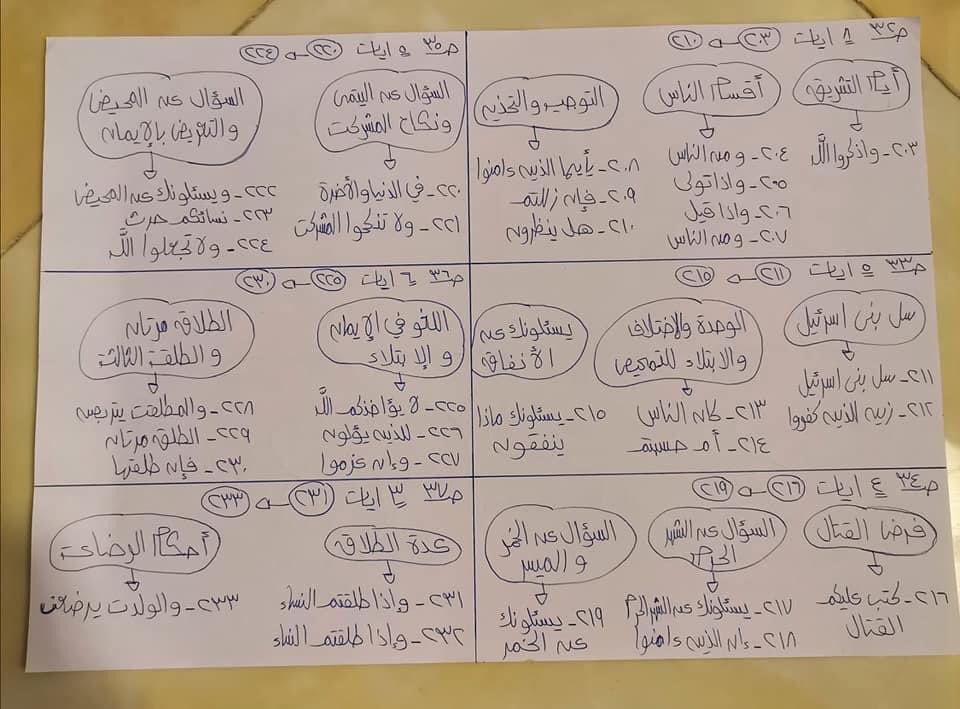 ص٣٢ ٨ ايات ٢٠٣ ← ٢١٠
أيام التشريق
٢٠٣- واذكروا اللّٰه
أقسام الناس
٢٠٤- ومن الناس
٢٠٥- واذا تولى
٢٠٦- واذا قيل
٢٠٧- ومن الناس
التوجيه والتحذير
٢٠٨- يأيها الذين ءامنوا
٢٠٩- فإن زللتم
٢١٠- هل ينظرون
ص٣٣ ٥ ايات ٢١١ ← ٢١٥
سل بنى اسرئيل
٢١١- سل بنى اسرئيل
٢١٢- زين للذين كفروا
الوحدة والإختلاف
والابتلاء للتمحيص
٢١٣- كان الناس
٢١٤- أم حسبتم
يسئلونك عن
الأنفاق
٢١٥- يسئلونك ماذا
ينفقون
ص٣٤ ٤ ايات ٢١٦ ← ٢١٩
فرض القتال
٢١٦- كتب عليكم
القتال
السؤال عن الشهر
الحرام
٢١٧- يسئلونك عن الشهر الحرام
٢١٨- إن الذين ءامنوا
السؤال عن الخمر
والميسر
٢١٩- يسئلونك
عن الخمر
ص٣٥ ٥ ايات ٢٢٠ ← ٢٢٤
السؤال عن اليتمى
ونكاح المشركت
٢٢٠- في الدنيا والأخرة
٢٢١- ولا تنكحوا المشركت
السؤال عن المحيض
والتعريض بالإيمان
٢٢٢- ويسئلونك عن المحيض
٢٢٣- نسائكم حرث
٢٢٤- ولا تجعلوا اللّٰه
ص٣٦ ٦ ايات ٢٢٥ ← ٢٣٠
اللغو في الإيمان
والإبتلاء
٢٢٥- لا يؤاخذكم اللّٰه
٢٢٦- للذين يؤلون
٢٢٧- وإن عزموا
الطلاق مرتان
والطلقة الثالثة
٢٢٨- والمطلقت يتربصن
٢٢٩- الطلق مرتان
٢٣٠- فإن طلقها
ص٣٧ ٣ ايات ٢٣١ ← ٢٣٣
عدة الطلاق
٢٣١- وإذا طلقتم النساء
٢٣٢- وإذا طلقتم النساء
أحكام الرضاعة
٢٣٣- والولدت يرضعن